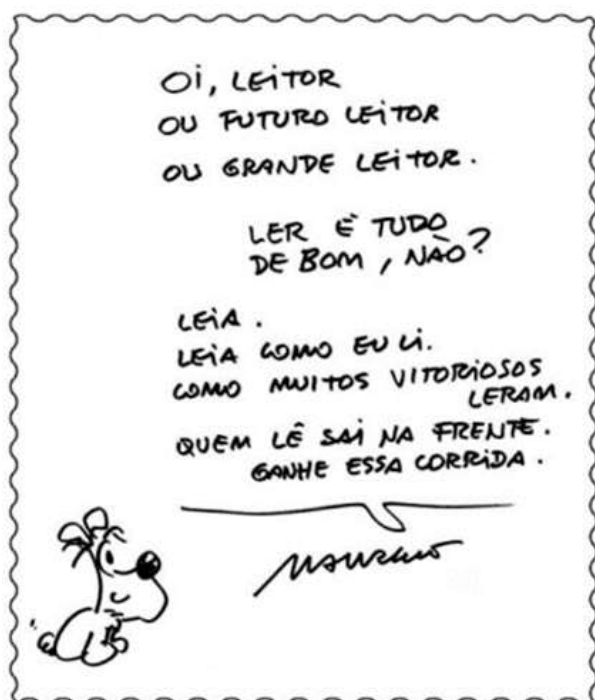 OI, LEITOR
OU FUTURO LEITOR
OU GRANDE LEITOR.
LER É TUDO
DE BOM, NÃO?
LEIA.
LEIA COMO EU LI.
COMO MUITOS VITORIOSOS
LERAM.
QUEM LÊ SAI NA FRENTE.
GANHE ESSA CORRIDA.
MAURICIO